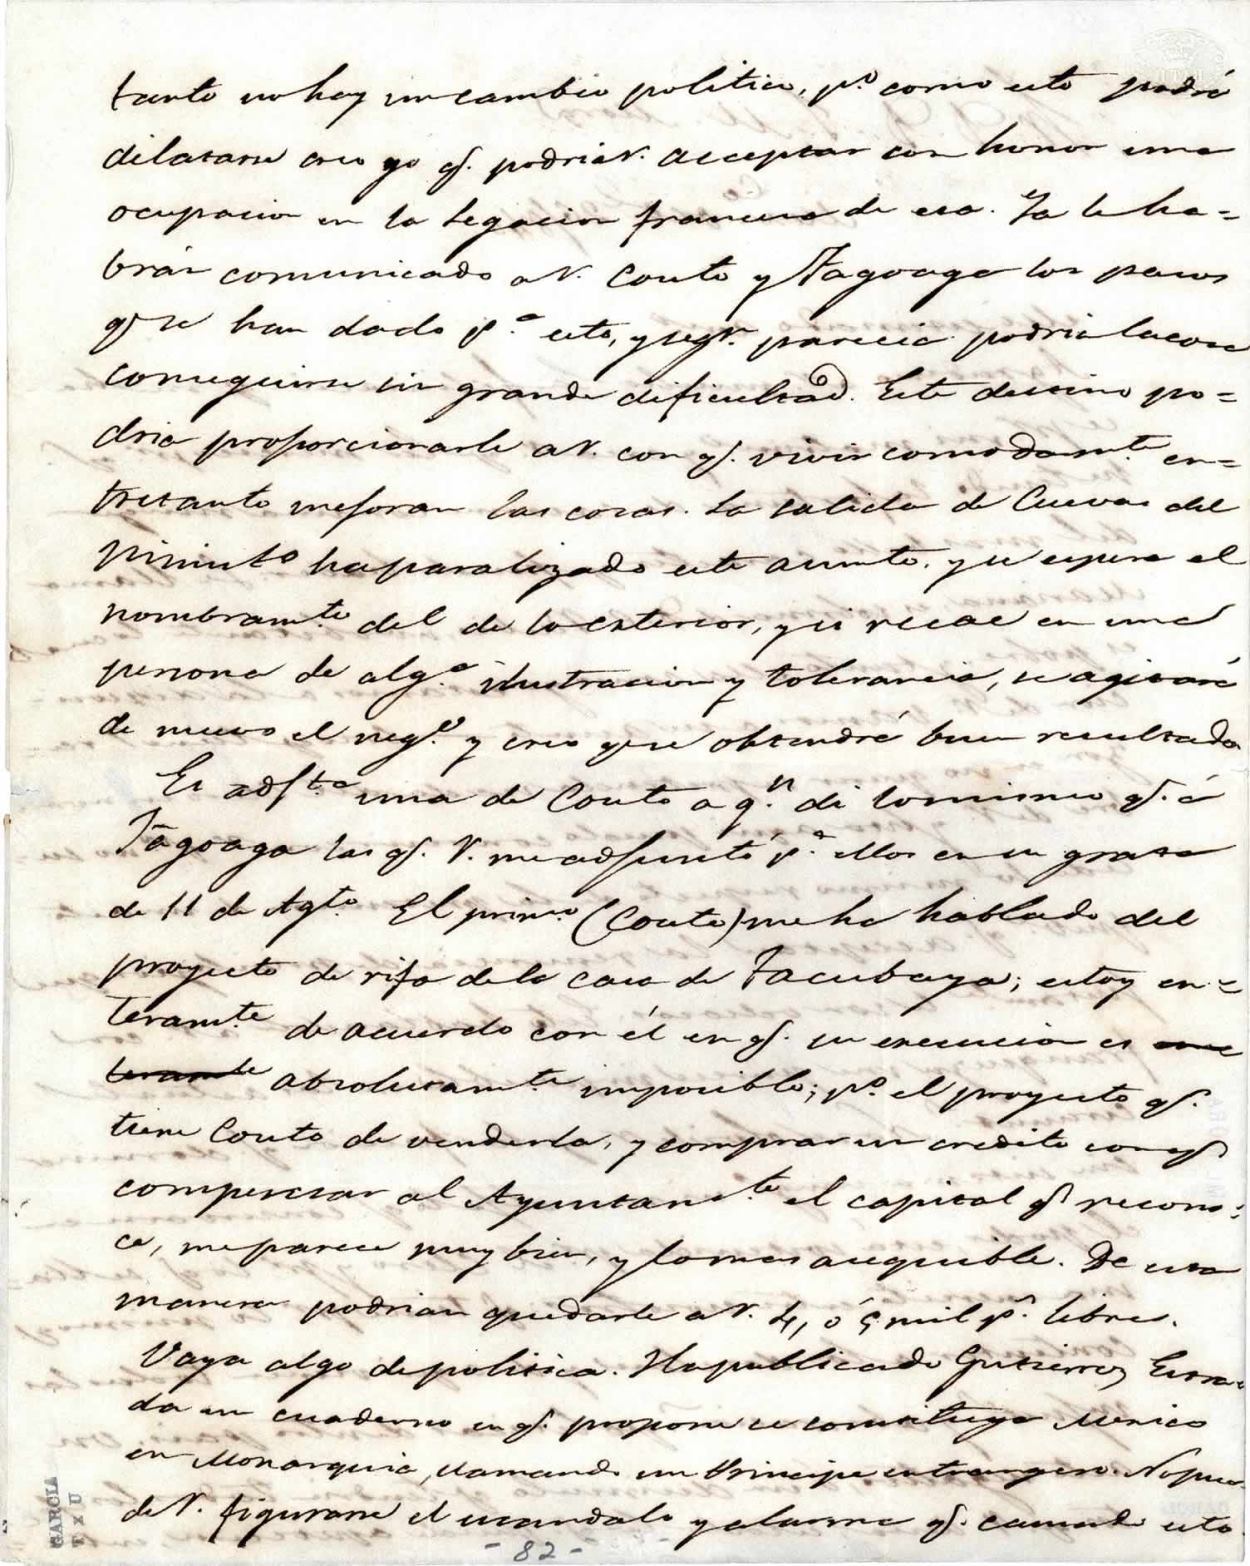 tanto no hay un cambio politico, pº como esto podrá
dilatarse creo yo q. podria V. acceptar con honor una
ocupacion en la Legacion francesa de esa. Ya le ha=
brán comunicado a V. Couto y Fagoaga los pasos
q. se han dado pª esto, y segn. parecia podria la cosa
conseguirse sin grande dificultad. Este destino po=
dria proporcionarle a V. con q. vivir comodamte. en=
tretanto mejoran las cosas. La salida de Cuevas del
Ministº ha paralizado este asunto, y se espera el
nombramto. del de lo exterior, y si recae en una
persona de alga. ilustracion y tolerancia, se agitará
de nuevo el nego. y creo que se obtendrá buen resultado
Es adjta. una de Couto a qn. di lo mismo q. á
Fagoaga las q. V. me adjuntó pª ellos en su grata
de 11 de Agto. El primo. (Couto) me ha hablado del
proyecto de rifa de la casa de Tacubaya; estoy en=
teramte. de acuerdo con él en q. su execucion es
absolutamte. imposible; pº el proyecto q.
tiene Couto de venderla, y comprar un credito con q.
compensar al Ayuntamto. el capital q. recono=
ce, me parece muy bien, y lo mas asequible. De esta
manera podrian quedarle a V. 4, ó 5 mil ps. libres.
Vaya algo de politica. Ha publicado Gutierrez Estra=
da un cuaderno en q. propone se constituya Mexico
en Monarquia, llamando un Principe extrangero. No pue=
de V. figurarse el escandalo y alarma q. causado esto
-82-
GARCIA
TxU